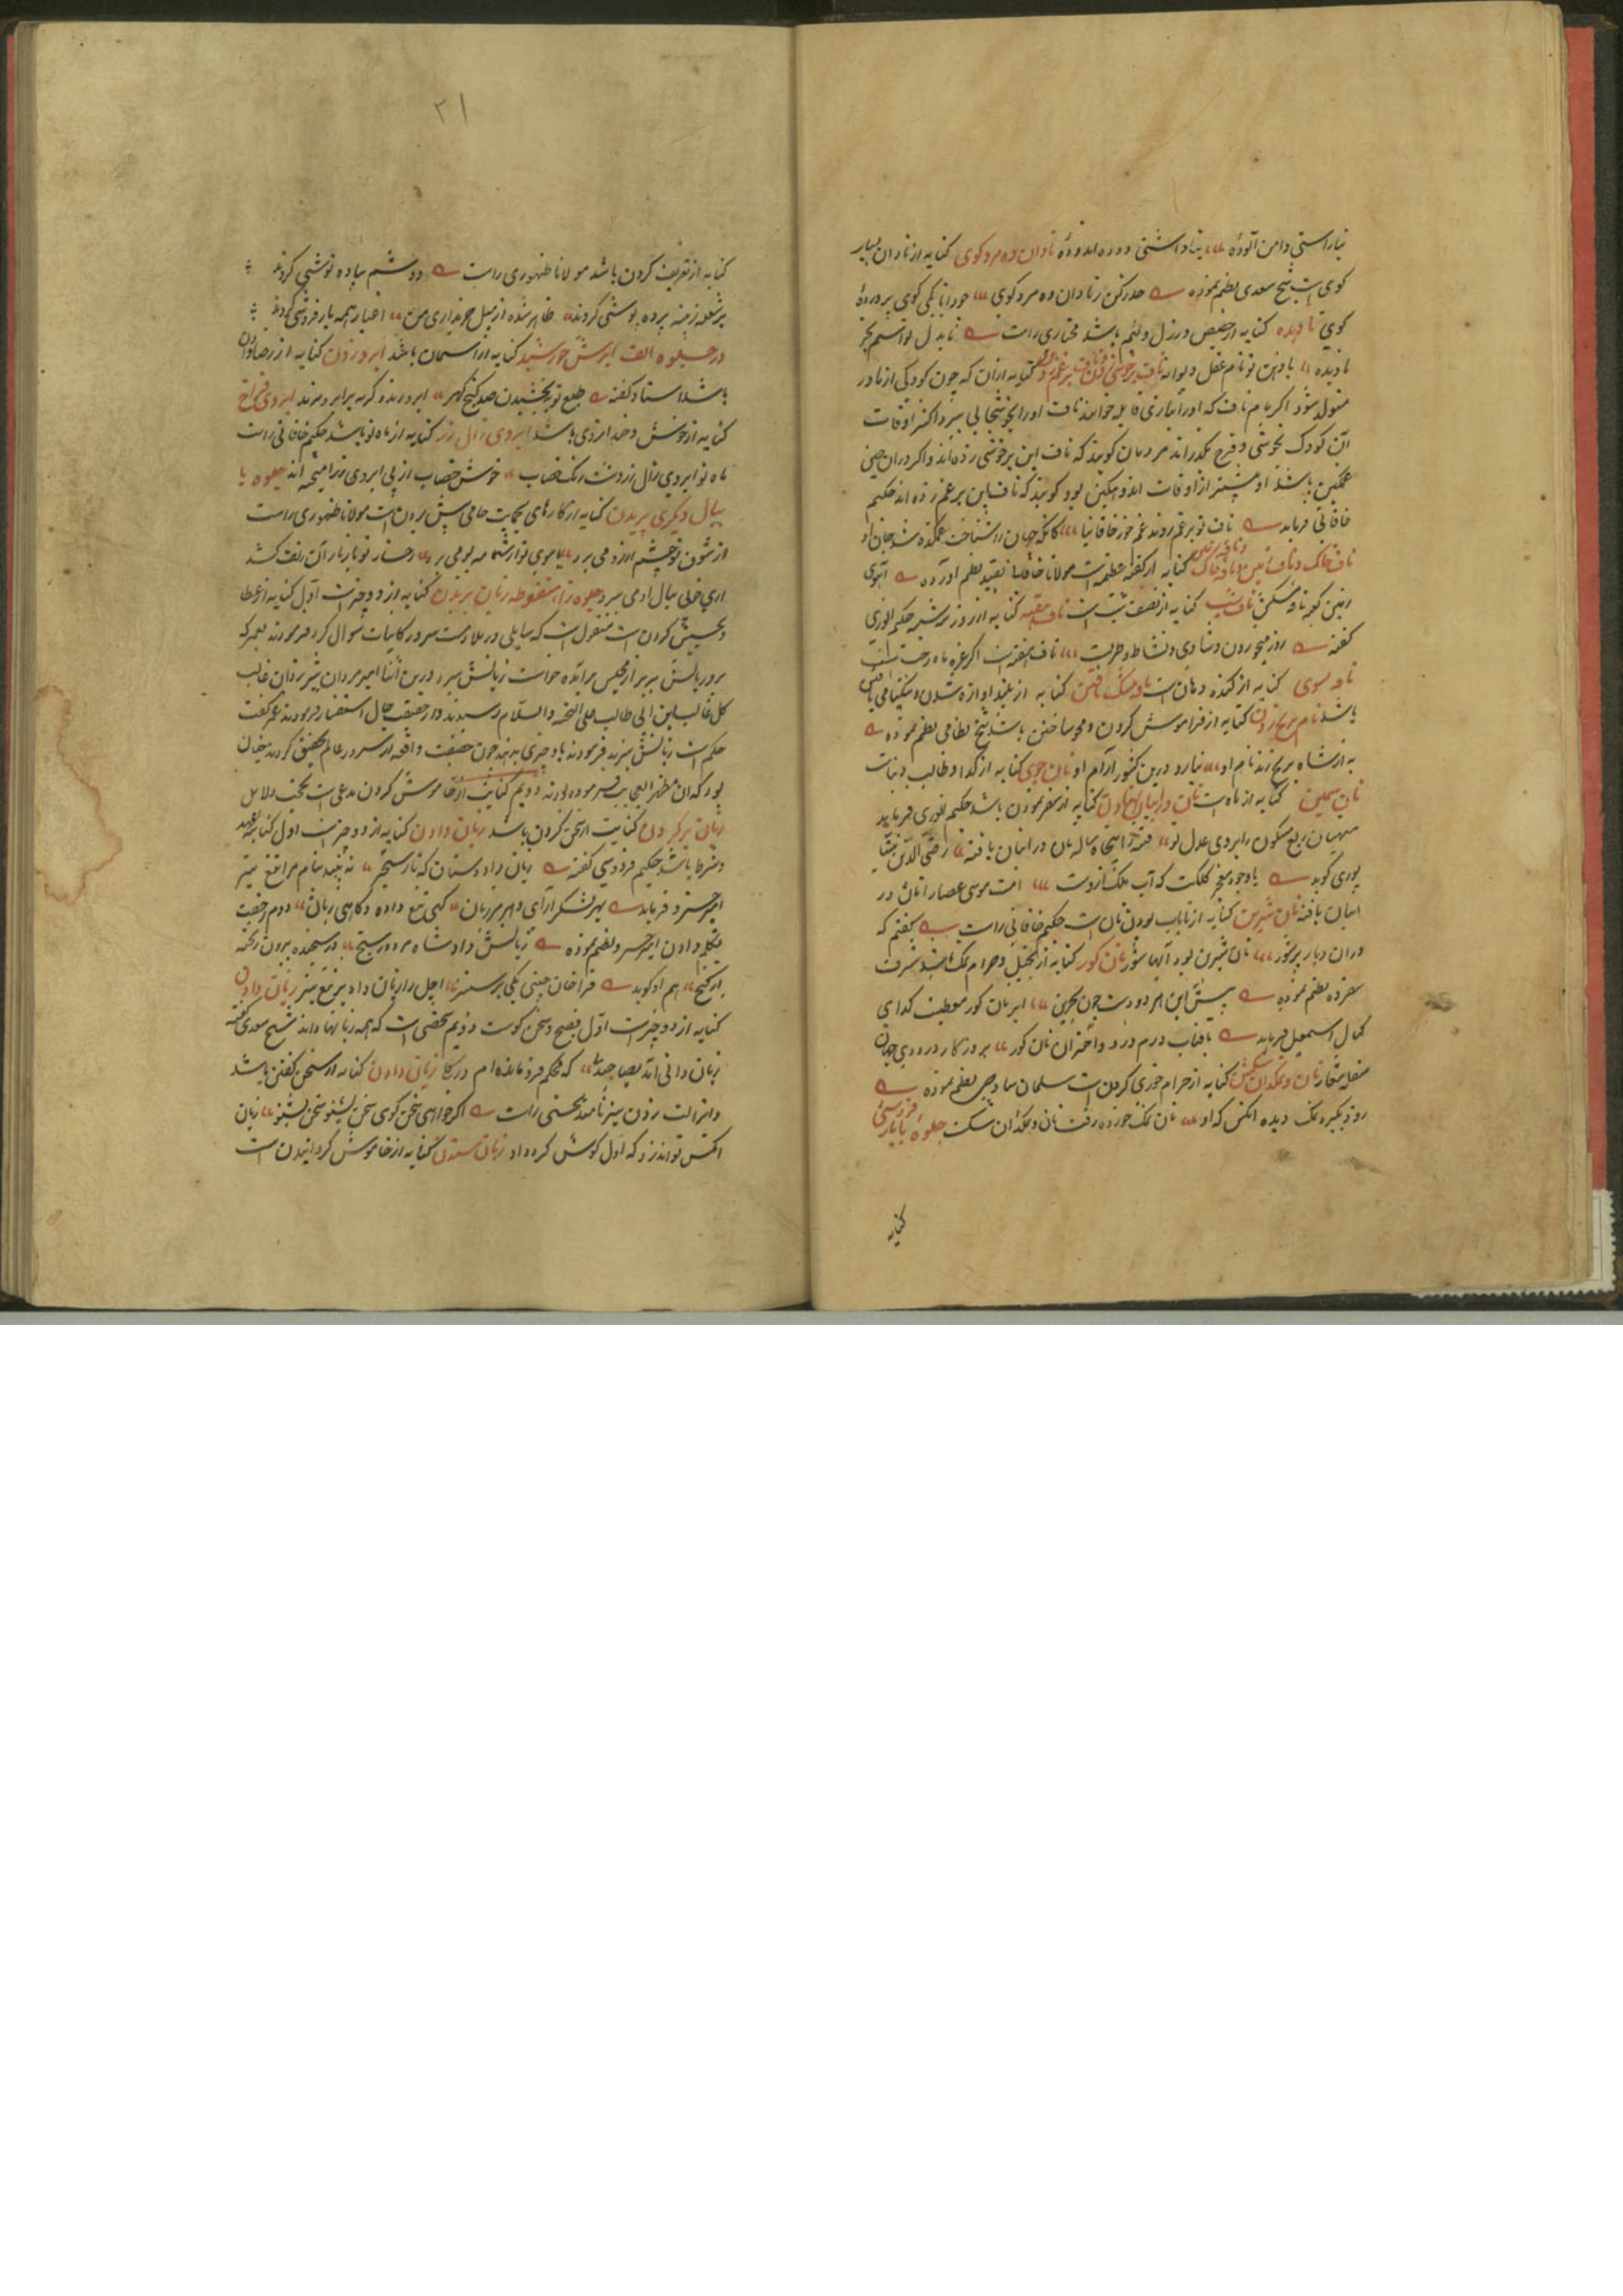 نیاراستی دامن آلوده نادان ده مرد کوی کنایه از نادان بسیار
کوی است شیخ سعدی نظم نموده حذر کن ز نادان ده مرد کوی چو دانا یکی کوی پرورده
کوی نادیده کنایه از خسیس و رذل و لئیم باشد مختاری راست
نادیده
متولد شود اکر بنام ناف که او را بتازی قابله خوانند ناف او را بخوشحالی ببرد اکثر اوقات
آن کودک بخوشی و فرح بگذراند مردمان کویند که ناف این بر خوشی زده اند و اکر در آن حین
غمکین باشد او بیشتر از اوقات اندوهکین بود کویند که ناف این بر غم زده اند حکیم
خاقانی فرماید ناف تو بر غم زدند غم خور خاقانیا کانکه جهان را شناخت غمکده شد جان او
ناف خاک و ناف زمین کنایه از کعبه معظمه است مولانا نظم آورده آهوی
ناف شب کنایه از نصف شب است ناف هفته کنایه از روز سه شنبه حکیم انوری
کفته روز می خوردن و شادی و نشاط و طرب ناف هفته است اکر غره ماه رجب است
کنایه از کنده دهان است کنایه از بلند آوازه شدن و نیکنامی یافتن
باشد نام بر یخ زدن کنایه از فراموش کردن و محو ساختن باشد شیخ نظامی نظم نموده
به ار شاه بر یخ زند نام او نیارد درین کشور آرام او نان جوی کنایه از کدا و طالب دنیاست
نان سیمین کنایه از ماه است نان در انبان نهادن کنایه از سفر نمودن باشد حکیم انوری فرماید
میهمان ربع مسکون را بروی عدل تو فتنه را پنجاه ساله نان در انبان یافته رضی الدین نیشا
پوری کوید امت موسی عصا را نان در
انبان یافته نان شیرین کنایه از نایاب بودن نان است حکیم خاقانی راست بکفتم که
در آن دیار پرشور نان شیرین بود آبها شور نان کور کنایه از بخیل و حرام نمک باشد شرف
سفرده نظم نموده پیش این هر دو دست چون بحرین ابر نان کور معطیت کدای
کمال اسمعیل فرماید بافتاب درم درد و اختران نان کور بروزکار درودی جهان
سفله شعار نان و نمکدان شکستن کنایه از حرام خوری کردن است سلمان ساوجی نظم نموده
روز دیکر نمک دیده آنکس که او نان نمک خورده رفت نان و نمکدان شکست
کنایه
۲۱
کنایه از تعریف کردن باشد مولانا ظهوری راست دوشم بباده نوشی کردند
پرشعله زینه پرده پوشی کردند ظاهر شده از میل خریداری من اغیار همه یار فروشی کردند
در جلوه الف ابرش خورشید کنایه از آسمان باشد ابرو زدن کنایه از رضا دادن
باشد استاد کفته طبع تو ببخشیدن صد کنج کهر ابرو زند و کره بر ابرو نزند ابروی فراخ
کنایه از خوش و خندان روی باشد ابروی زال زر کنایه از ماه نو باشد حکیم خاقانی راست
ماه نو ابروی زال زر و شب رنک خضاب خوش خضاب از پی ابروی زر آمیخته اند جلوه با
ببال دیکری پریدن کنایه از کارهای بحمایت حامی پیش بردن است مولانا ظهوری راست
از شوق تو چشم آرزو می پرد با موی تو از شامه بو می پرد رخسار تو
آری خوبی ببال او می پرد جلوه زاء منقوطه زبان بریدن کنایه از دو چیز است اول کنایه از عطا
و بخشش کردن است منقول است که سایلی در ملازمت سرور کاینات سوال کرد فرمودند بعمر که
برو زبانش ببر بر از مجلس برآمده خواست زبانش ببرد درین اثنا امیر مردان شیر یزدان غالب
کل غالب ابن ابی طالب علیه التحیه والسلام رسیدند و از حقیقت حال استفسار فرمودند عمر کفت
حکم است زبانش ببرند فرمودند باو چیزی بدهند چون حقیقت واقعه از سرور عالم تحقیق کردند چنان
بود که آن مظهر العجایب فرموده بودند دویم کنایت از خاموش کردن مدعی است بحجت و دلایل
زبان بر کردن کنایت از سخن کردن باشد زبان دادن کنایه از دو چیز است اول کنایه از عهد
و شرط باشد حکیم فردوسی کفته زبان داد دستان که تا رستخیز نه بیند نیام مرا تیغ تیز
امیر خسرو فرماید بهر لشکر آرای و هر مرزبان کهی تیغ داده و کاهی زبان دوم رخصت
تکلم دادن امیر خسرو نظم نموده زبانش داد شاه
از کنج هم او کوید قراخان چینی یکی بر ستیز اجل را زبان داد بر تیغ تیز زبان دان
کنایه از دو چیز است اول فصیح و سخن کوست دویم شخصی است که همه زبانها داند شیخ سعدی کفته
زبان دانی آمد بصاحبدلی که محکم فرو مانده ام در کلی زبان دادن کنایه از سخن کفتن باشد
راست اکر خواهی سخن کوی سخن بشنو سخن بشنو زبان
آنکس تواند زد که اول کوش کردد او زبان ستدن کنایه از خاموش کردانیدن است